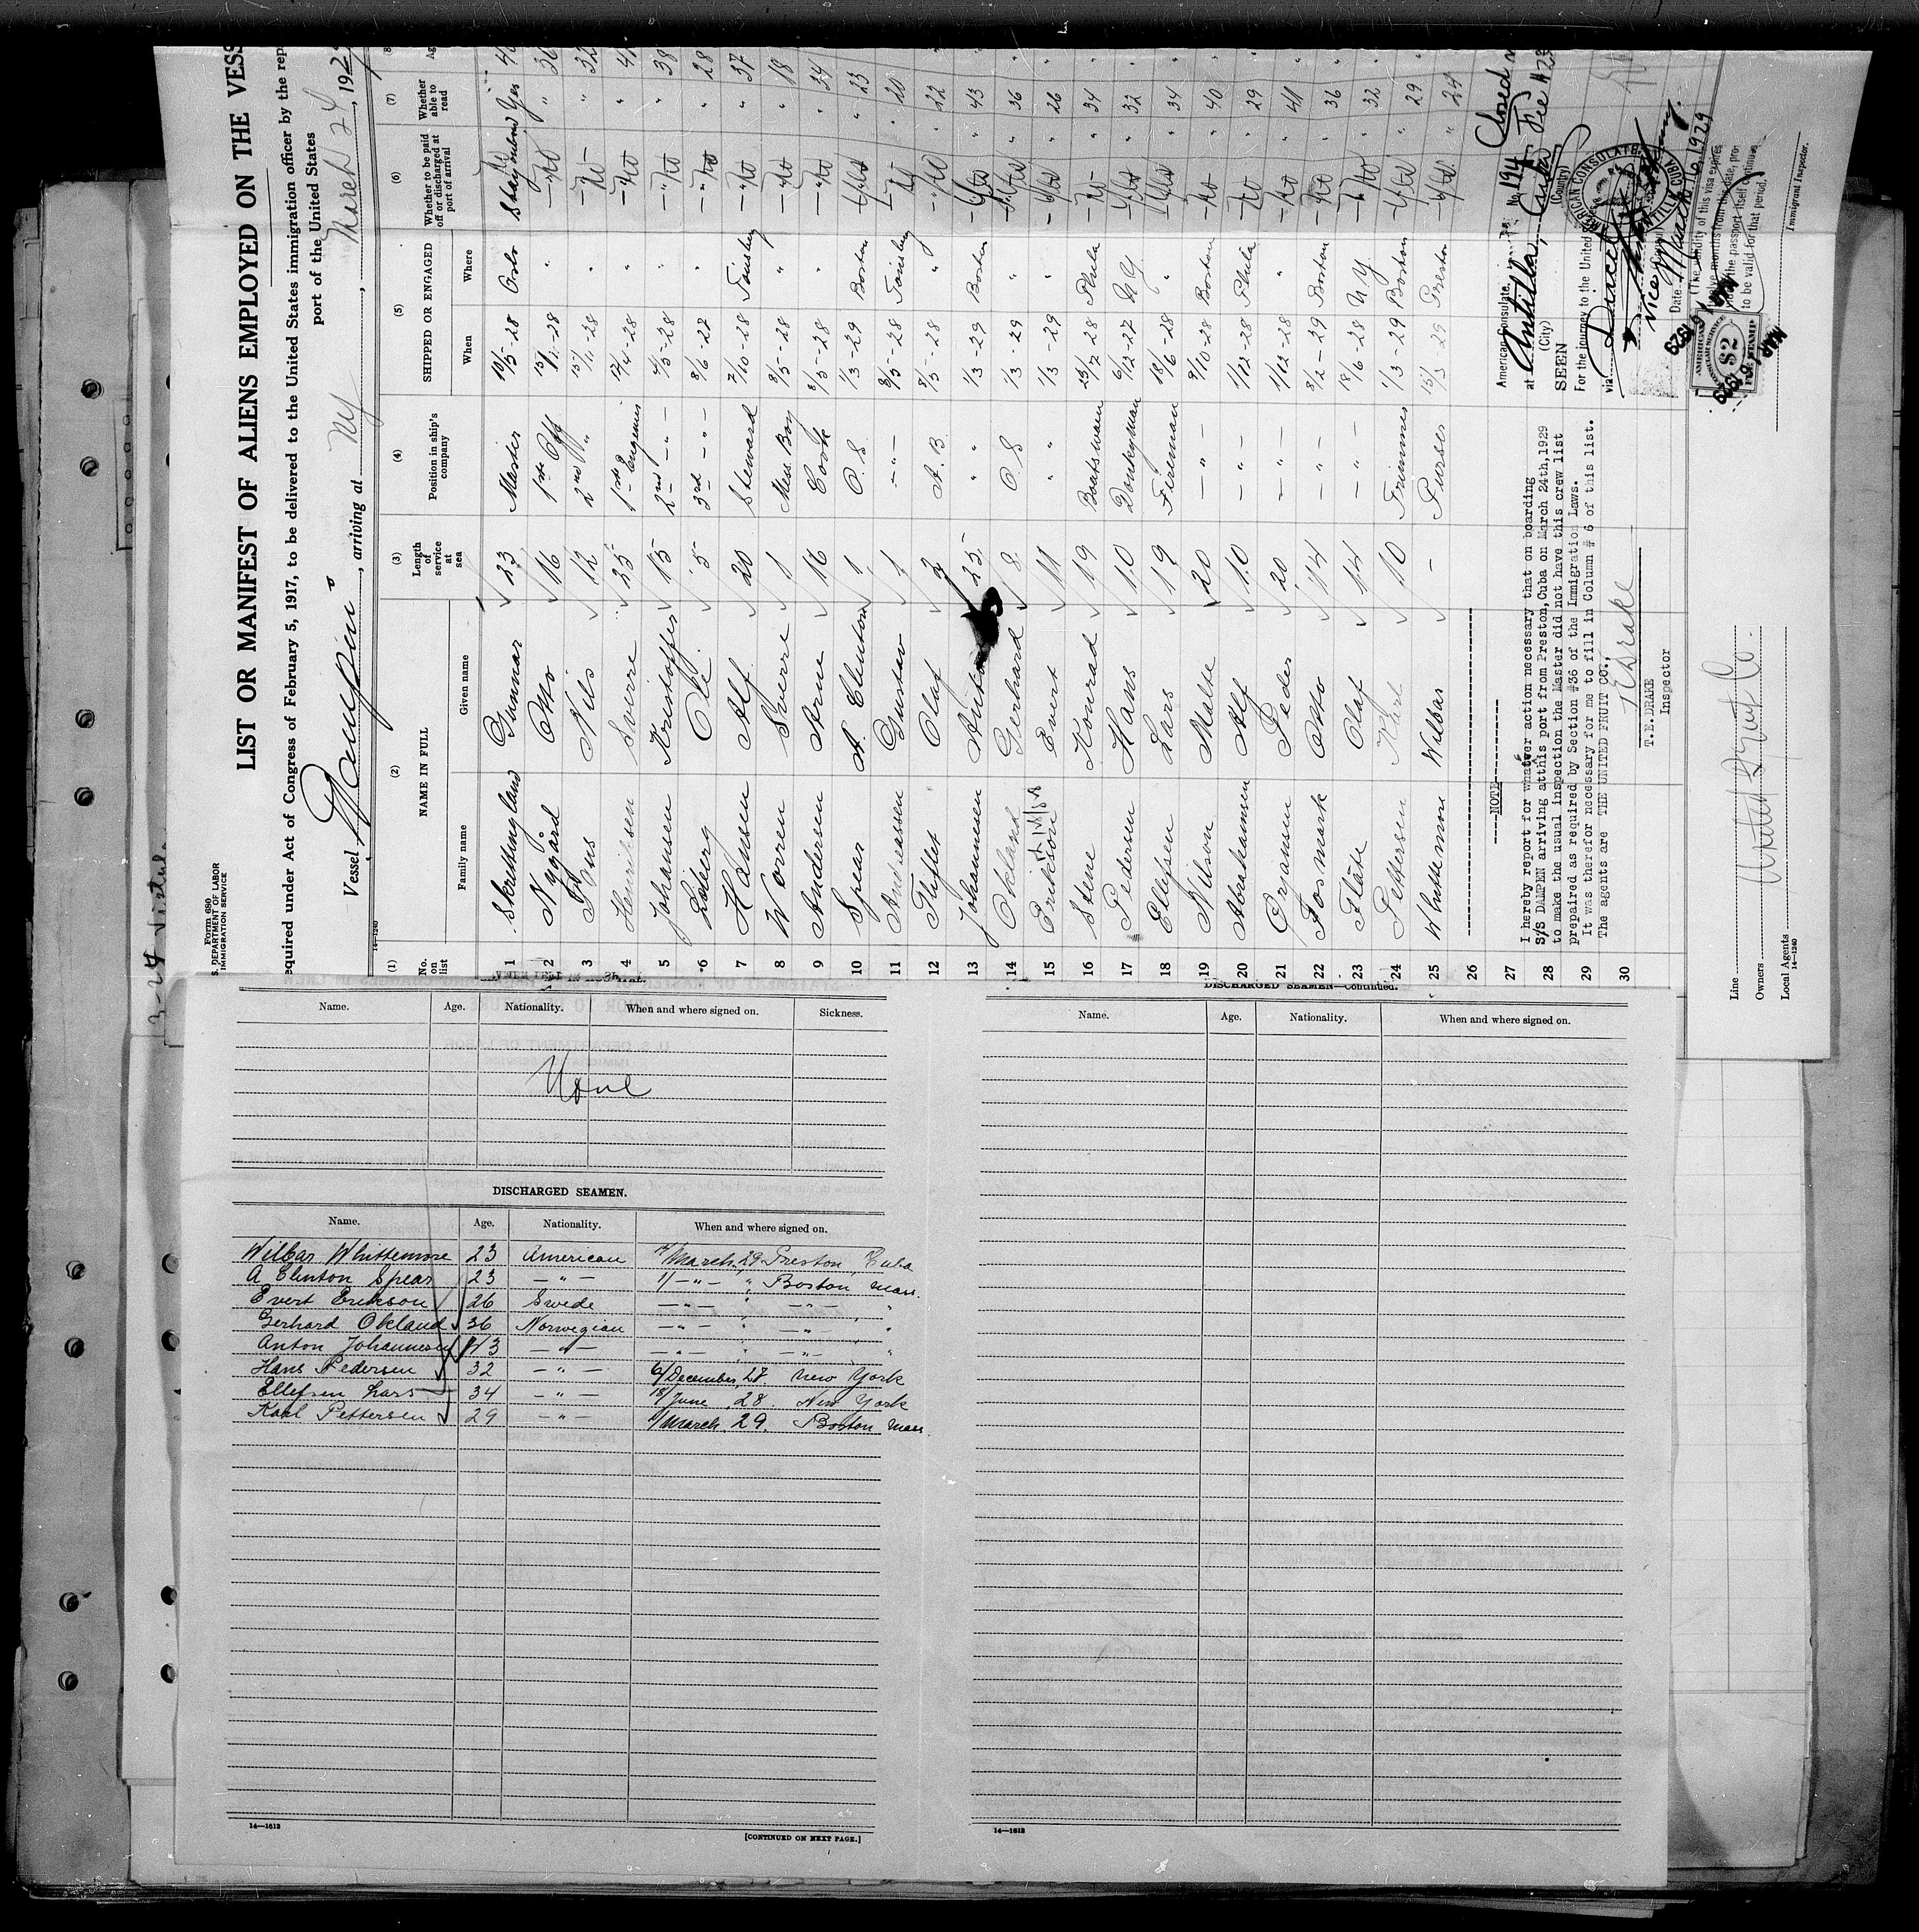 3-24 Vistula
Form 680
S. DEPARTMENT OF LABOR
IMMIGRATION SERVICE
LIST OR MANIFEST OF ALIENS EMPLOYED ON THE VESS
equired under Act of Congress of February 5, 1917, to be delivered to the United States immigration officer by the rep
port of the United States
Vessel , arriving at NY , March 24 , 192
14-1240
(1) (2) (3) (4) (5) (6) (7) (8
No. on list NAME IN FULL Length of service at sea Position in ship's company SHIPPED OR ENGAGED Whether to be paid off or discharged at port of arrival Whether able to read Ag
Family name Given name When Where
1 Skruttingland Gunnar 23 Master 10/5-28 Oslo Yes
2 Nygård Otto 16 1ste Off 15/11-28 " "
3 Nils 12 2nd " 15/11-28 " " 32
4 Henriksen Sverre 25 1ste Engenius 12/4-28 " "
5 Johansen Kristoffer 15 2nd -"- 4/5-28 " " 38
6 Ole 5 3rd -"- 8/6-27 " " 28
7 Hansen Alf 20 Steward 7/10-28 Tønsberg " 37
8 Worren Sverre 1 Mess Boy 8/5-28 " " 18
9 Andersen Arne 16 Cook 8/5-28 " " 34
10 Spear A. Clinton 1 O. S 1/3-29 Boston " 23
11 Andreassen Gustav 1 -"- 8/5-28 Tønsberg " 20
12 Tufket Olaf 3 A. B 8/5-28 " " 22
13 Johannesen Anton 25 " 1/3-29 Boston " 43
14 Okland Gerhard 8 O. S 1/3-29 " " 36
15 Erikson Evert 11 " 1/3-29 " " 26
16 Stene Konrad 19 Boatswain 23/7-28 Phila " 34
17 Pedersen Hans 10 Donkeyman 6/12-27 NY " 32
18 Ellefsen Lars 19 Fireman 18/6-28 " " 34
19 Nilson Malte 20 -"- 9/10-28 Boston " 40
20 Abrahamsen Alf 10 -"- 1/12-28 Phila " 29
21 Ørjansen Peder 20 -"- 1/12-28 " " 41
22 Fosmark Otto 14 -"- 8/2-29 Boston " 36
23 Flåte Olaf 14 -"- 18/6-28 NY " 32
24 Pettersen Karl 10 Trimmer 1/3-29 Boston " 29
25 Whittemore Wilbar - Purser 15/3 29 Preston " 24
26
27 ----NOTE----
28
29
30
I hereby report for whatever action necessary that on boarding
S/S DAMPEN arriving atthis port from Preston,Cuba on March 24th,1929
to make the usual inspection the Master did not have this crew list
prepaired as required by Section #36 of the Immigration Laws.
It was therefor necessary for me to fill in Column # 6 of this list.
The agents are THE UNITED FRUIT CO.,
T E Drake
T.E.DRAKE
Inspector
American Consulate, No 194
at Antilla, Cuba Fee #23
(City) (Country)
SEEN
For the journey to the United
via Direct
AMERICAN CONSULATE
ANTILLA, CUBA
Vice
Date March 16 1929
(The validity of this visa expires
twelve months from this date, pro-
vided the passport itself continues
to be valid for that period.)
$2
FEE STAMP
MAR 16 1929
Immigrant Inspector.
Line
Owners United Fruit Co.
Local Agents
14-1240
Name. Age. Nationality. When and where signed on. Sickness.
None
DISCHARGED SEAMEN.
Name. Age. Nationality. When and where signed on.
Wilbar Whittemore 23 American 15/March. 29 Preston, Cuba
A Clinton Spear 23 -"- 1/-"- " Boston Mass.
Evert Erikson 26 Swede -"- " -"- "
Gerhard Okland 36 Norwegian -"- " -"- "
Anton Johannesen 43 -"- -"- " -"- "
Hans Pedersen 32 -"- 6/December, 27. New York
Ellefsen Lars 34 -"- 18/June, 28. New York
Karl Pettersen 29 -"- 1/March. 29. Boston Mass.
14—1613
[CONTINUED ON NEXT PAGE.]
DISCHARGED SEAMEN—Continued.
Name. Age. Nationality. When and where signed on.
14—1613